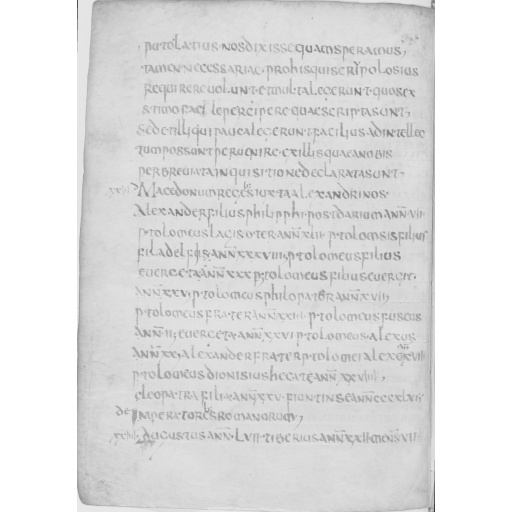 puto latius nos dixisse quam speramus,
tamen necessariae pro his qui scrupolosius
requirere uolunt et multa legerunt quos ex
estimo facile percipere quae scripta sunt,
sed et illi qui pauca legerunt facilius ad intellec
tum possunt peruenire ex illis quae a nobis
per breuiata inquisitione declarata sunt
Macedonum reges iuxta alexandrinos
Alexander filius philipphi post darium ann vii
ptolomeus lagis oter ann xlii ptolomeus filius
filadelfus ann xxxviii ptolomeus filius
euergeta ann xxx ptolomeus filius euerget
ann xxv ptolomeus philopater ann xvii
ptolomeus frater ann ptolomeus fuscus
ann ii, euergeta ann xxvi ptolomeus alexus
ann xx, alexander frater ptolomei alex
ptolomeus dionisius hecate ann xxviiii,
cleopatra filia ann xxv fiunt in se ann
de Imperatores romanorum,
Augustus ann lvii tiberius ann xxii mens vii